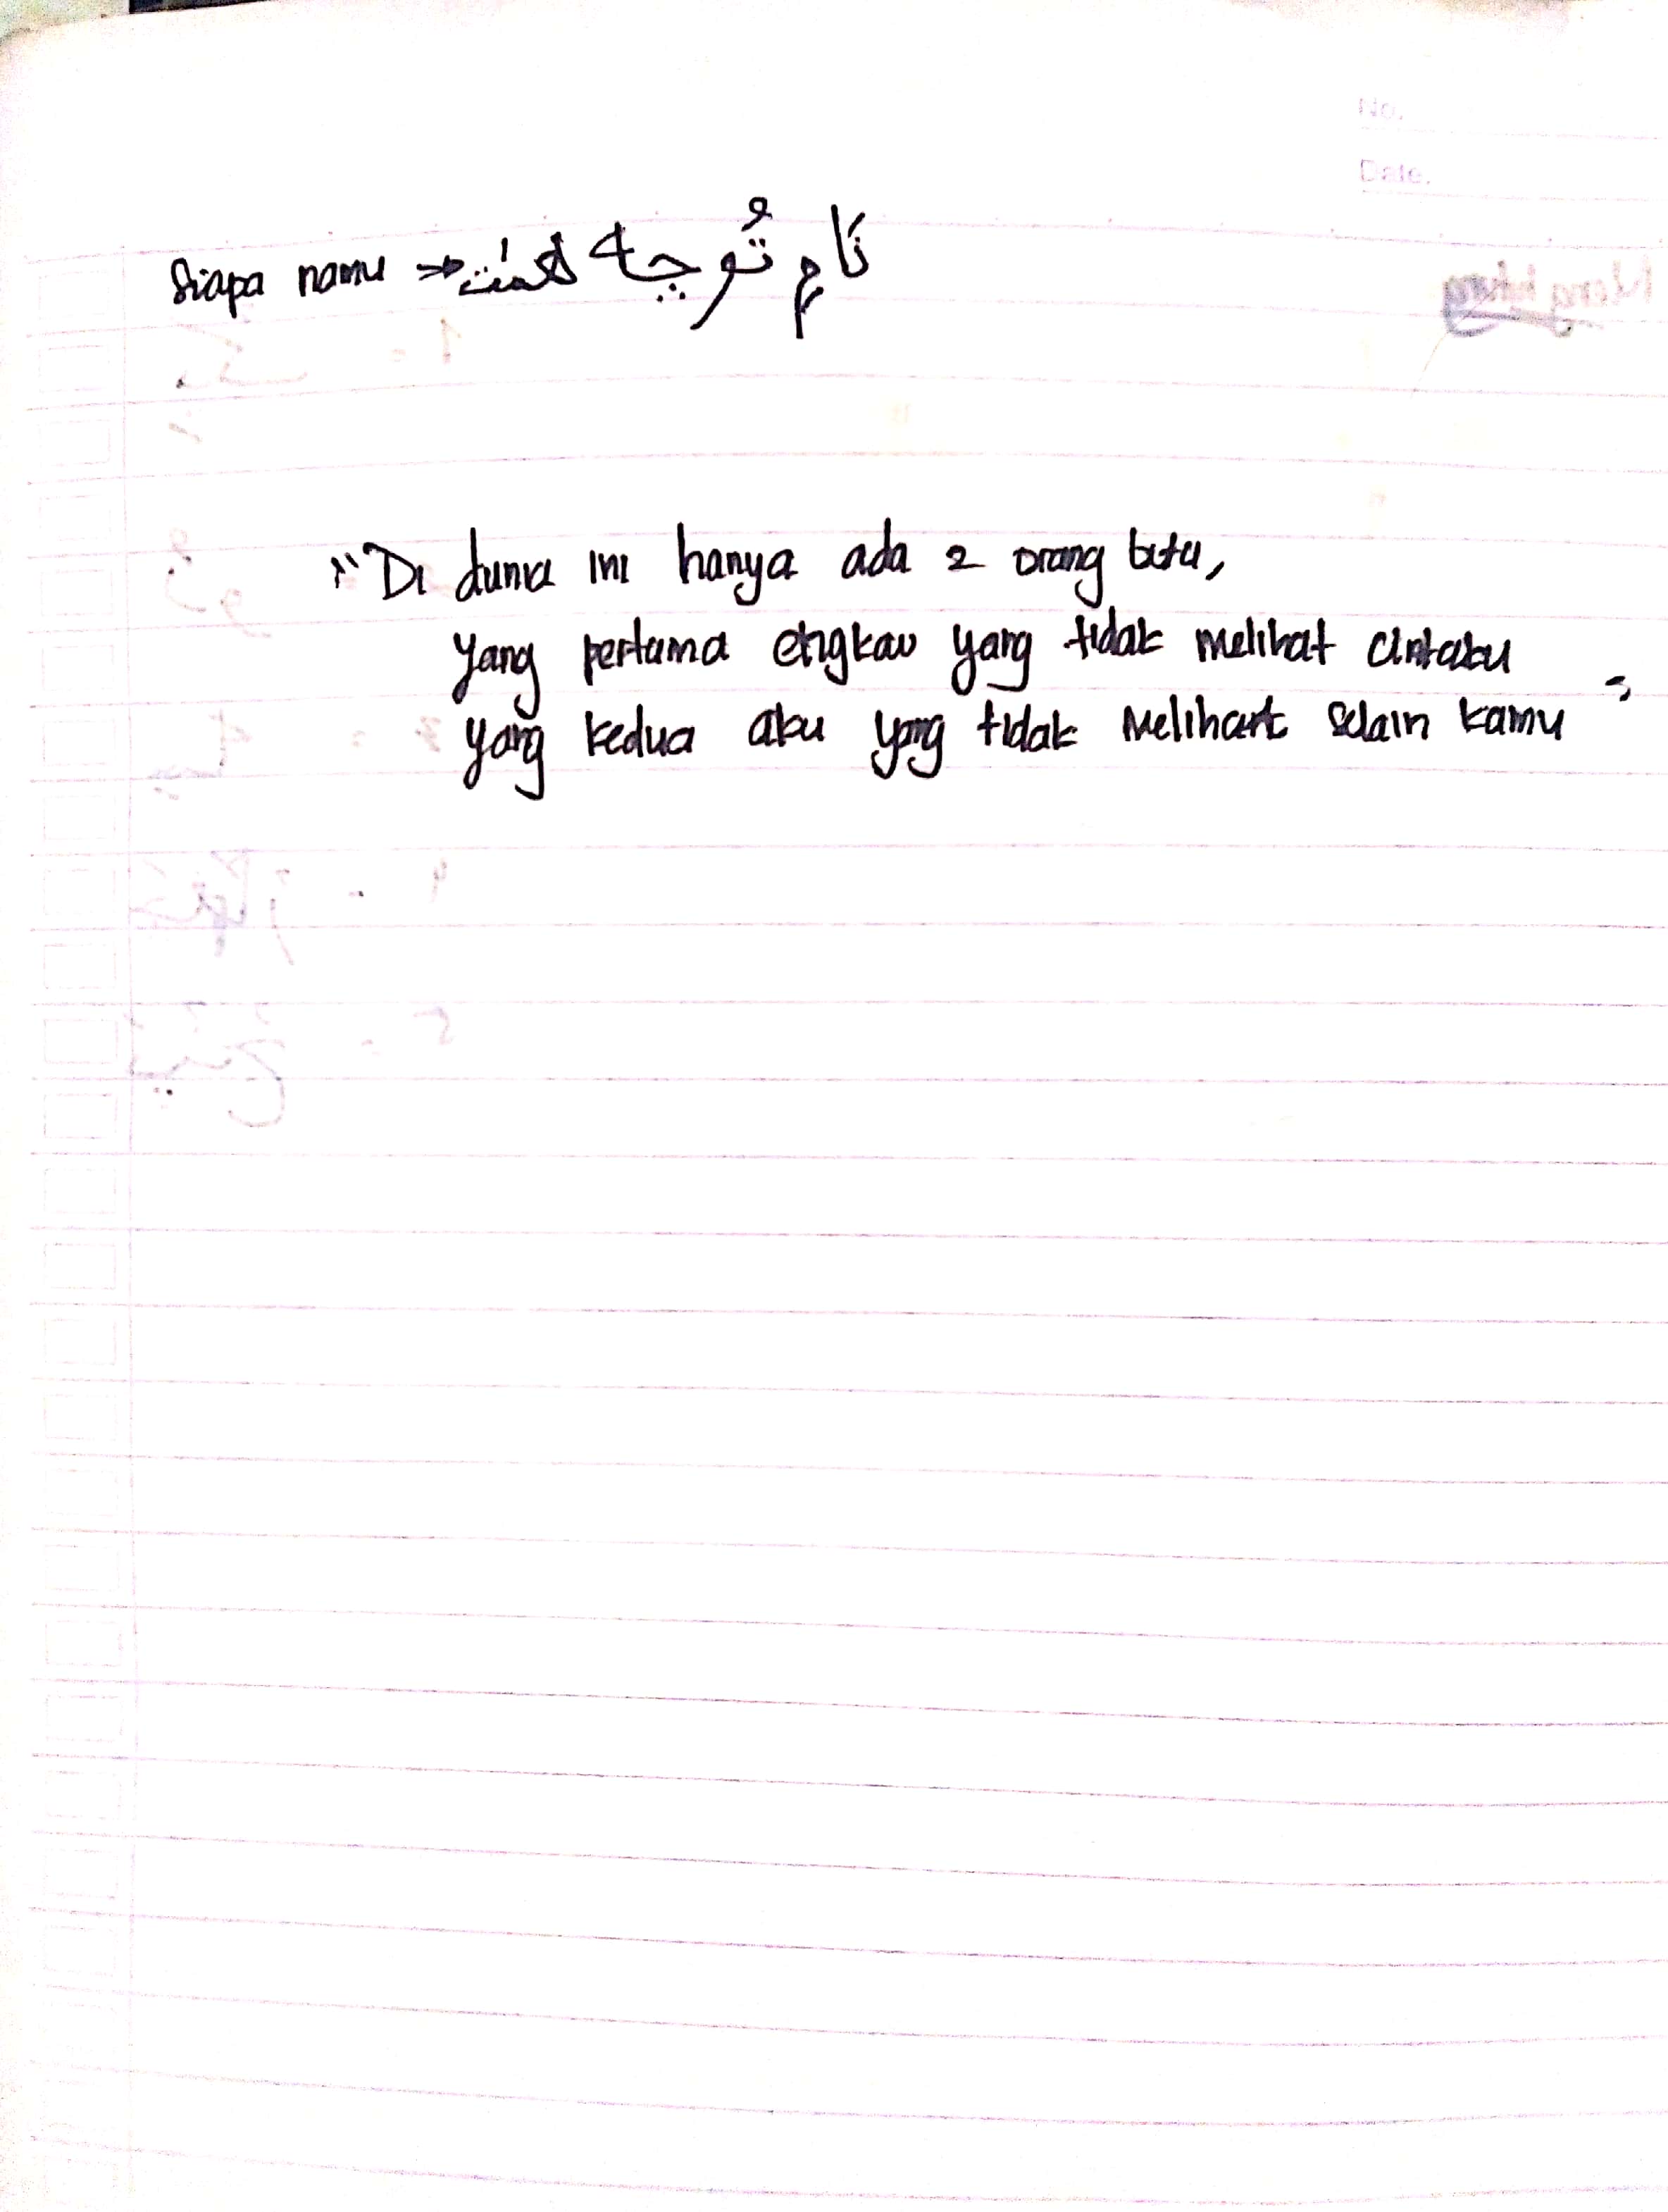 No.
Date.
Siapa namu ⇒ نَام تُوچه
"Di dunia ini hanya ada 2 orang buta,
yang pertama engkau yang tidak melihat cintaku
yang kedua aku yang tidak melihat selain kamu "